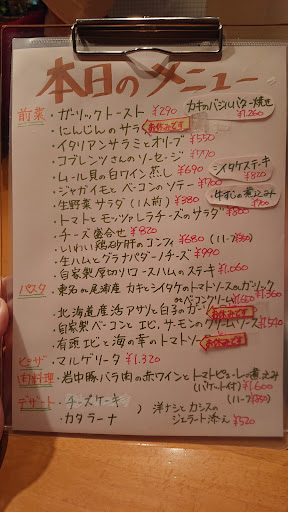 本日のメニュー
前菜
・ガーリックトースト ¥290
カキのバジルバター焼き ¥1,260
・にんじんのサラ お休みです
・イタリアンサラミとオリーブ ¥550
・コブレンツさんのソーセージ ¥770
・ムール貝の白ワイン蒸し ¥690
シイタケステーキ ¥820
・ジャガイモとベーコンのソテー ¥700
・生野菜サラダ (1人前) ¥380
牛すじの煮込み ¥700
・トマトとモッツァレラチーズのサラダ ¥800
・チーズ盛合せ ¥820
・いわい鶏砂肝のコンフィ ¥680 (ハーフ¥350)
・生ハムとグラナパダーノチーズ ¥990
・自家製厚切りロースハムのステキ ¥1,060
パスタ
・東名の尾浦産 カキとシイタケのトマトソースorガーリック ¥1,360
orベーコンクリーム ¥1,660
・北海道産活アサリと白子のガー お休みです
・自家製ベーコンとエビ、サーモンのクリームソース ¥1,540
・有頭エビと海の幸のトマトソ お休みです
ピッザ
・マルゲリータ ¥1,320
肉料理
・岩中豚バラ肉の赤ワインとトマトピューレの煮込み
(バケット付) ¥1,600
(ハーフ¥850)
デザート
・チーズケーキ
・カタラーナ
) 洋ナシとカシスのジェラート添え ¥520